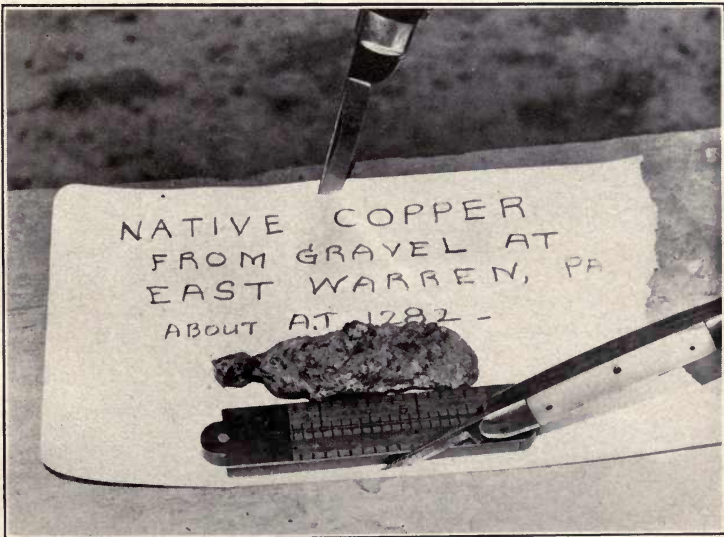 NATIVE COPPER
FROM GRAVEL AT
EAST WARREN, PA
ABOUT AT 1282 -